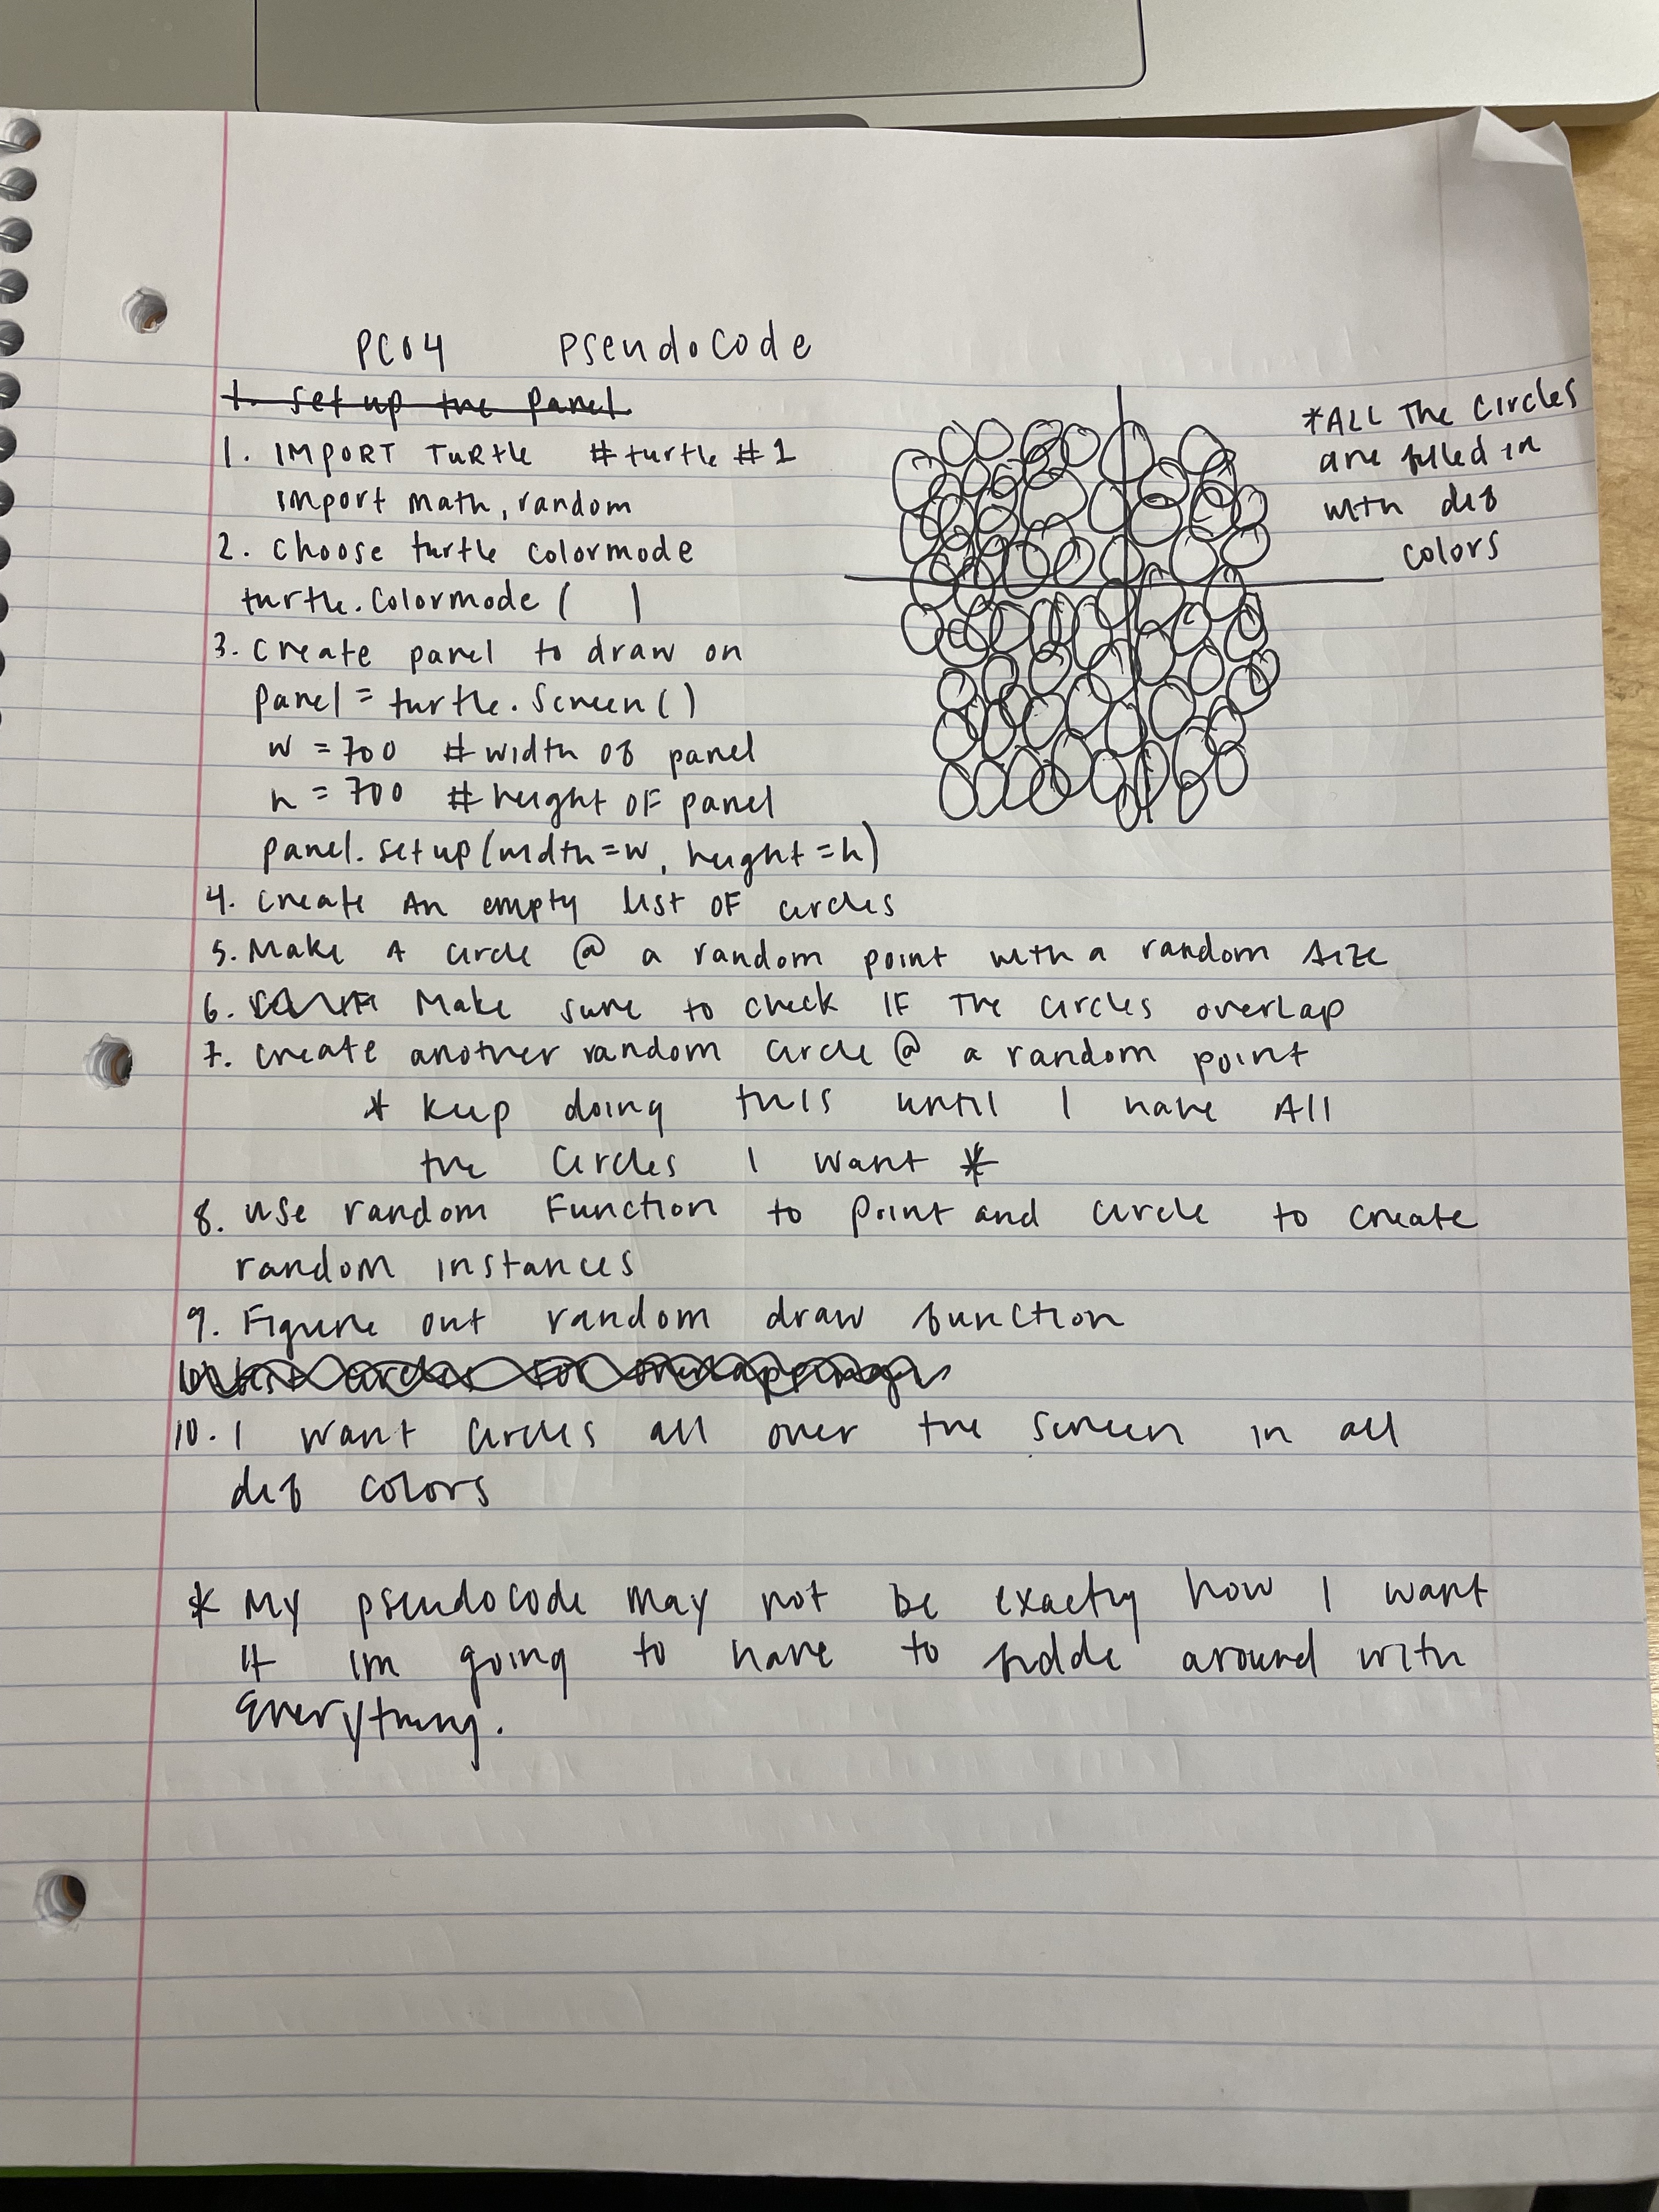 PC04 Pseudocode
1. set up the panel
1. IMPORT TURtle #turtle #1
import math, random
2. choose turtle colormode
turtle.colormode( )
3. create panel to draw on
panel = turtle.Screen()
w = 700 # width of panel
h = 700 # height of panel
panel.setup(width=w, height=h)
*ALL The circles
are filled in
with dif
colors
4. create An empty list OF circles
5. Make A circle @ a random point with a random size
6. Make sure to check IF The circles overlap
7. create another random circle @ a random point
* keep doing this until I have All
the circles I want *
8. use random Function to point and circle to create
random instances
9. Figure out random draw function
10. I want circles all over the screen in all
dif colors
* My pseudocode may not be exactly how I want
it im going to have to fiddle around with
everything.